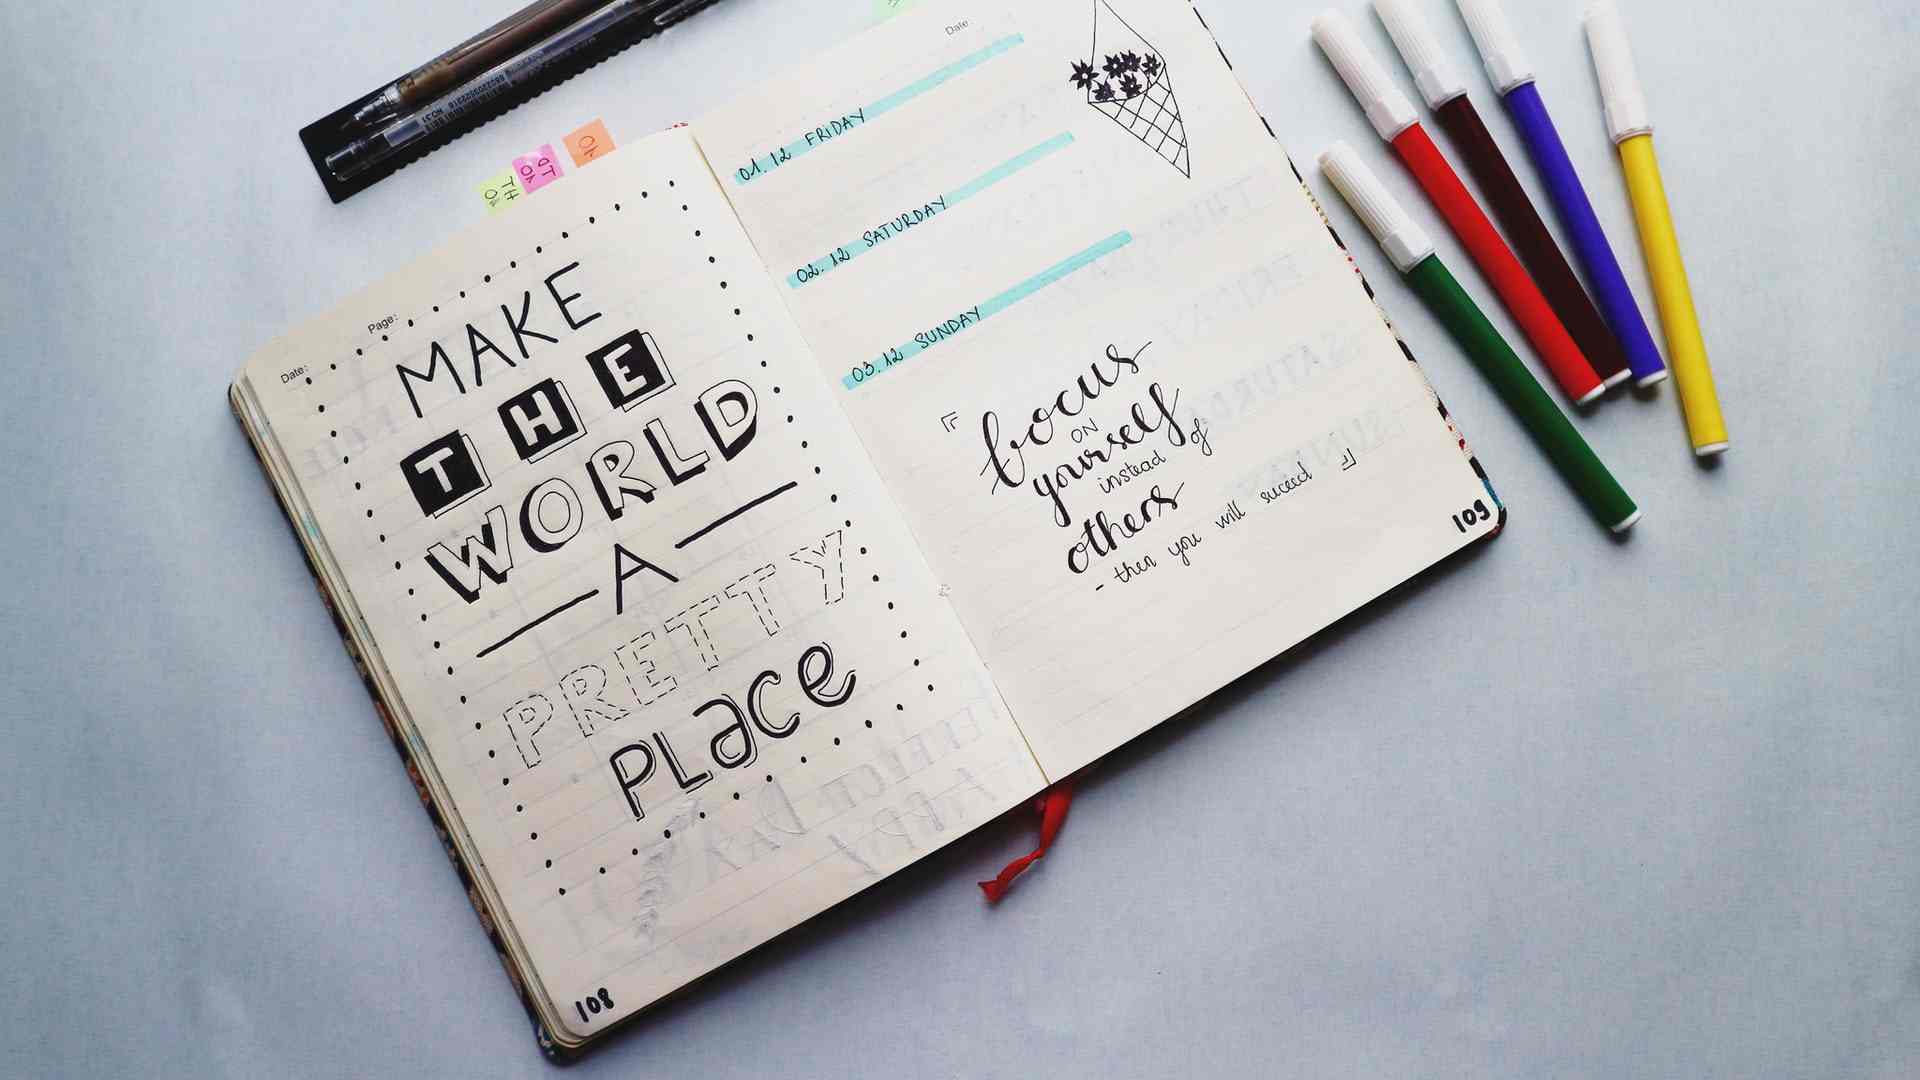 Date:
Page:
MAKE
THE
WORLD
A
PRETTY
PLace
108
Date:
01. 12 FRiDAY
02. 12 SATURDAY
03. 12 SUNDAY
focus
ON
yourself
instead of
others
- then you will suceed
109